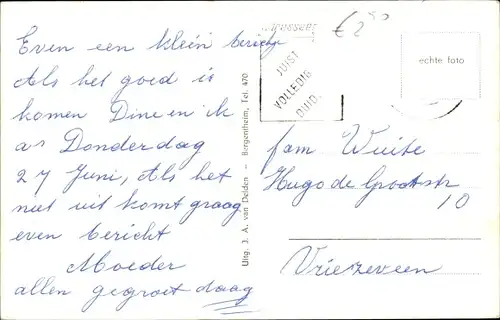 Even een klein berichtje
Als het goed is
komen Dine en ik
as Donderdag
27 Juni, Als het
niet uit komt graag
even bericht
Moeder
allen gegroet daag
Uitg. J. A. van Delden - Bergentheim, Tel. 470
€ 2,50
JUIST
VOLLEDIG
DUID.
echte foto
fam Wuite
Hugo de Grootstr
10
Vriezeveen